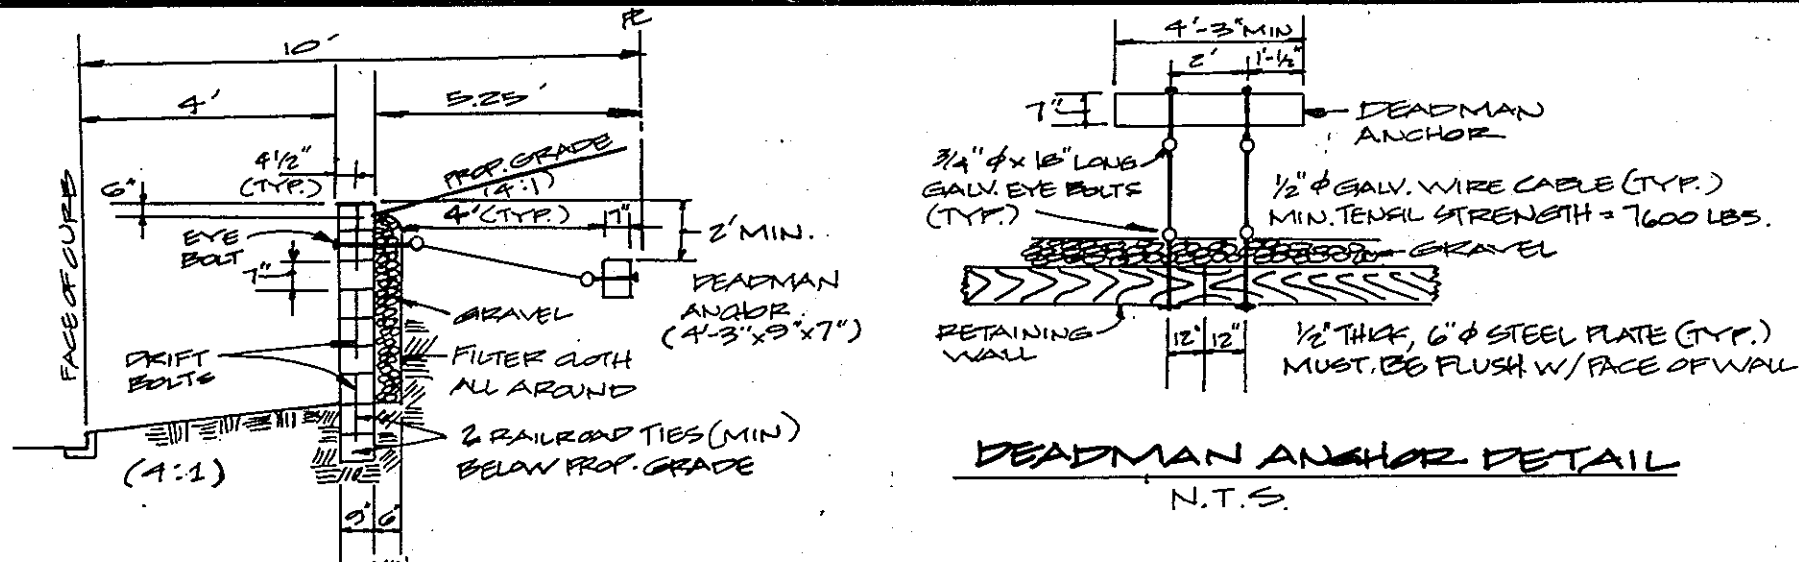 PL
10'
4'
5.25'
4 1/2"
(TYP.)
PROP. GRADE
(4:1)
6"
4' (TYP.)
7"
2' MIN.
EYE
BOLT
7"
FACE OF CURB
DEADMAN
ANCHOR
(4'-3"x9"x7")
GRAVEL
DRIFT
BOLTS
FILTER CLOTH
ALL AROUND
2 RAILROAD TIES (MIN)
BELOW PROP. GRADE
(4:1)
9" 6"
4'-3" MIN
2' 1'-1/2"
7"
DEADMAN
ANCHOR
3/4" φ x 18" LONG
GALV. EYE BOLTS
(TYP.)
1/2" φ GALV. WIRE CABLE (TYP.)
MIN. TENSIL STRENGTH = 7600 LBS.
GRAVEL
RETAINING
WALL
12" 12"
1/2" THICK, 6" φ STEEL PLATE (TYP.)
MUST BE FLUSH W/ FACE OF WALL
DEADMAN ANCHOR DETAIL
N.T.S.